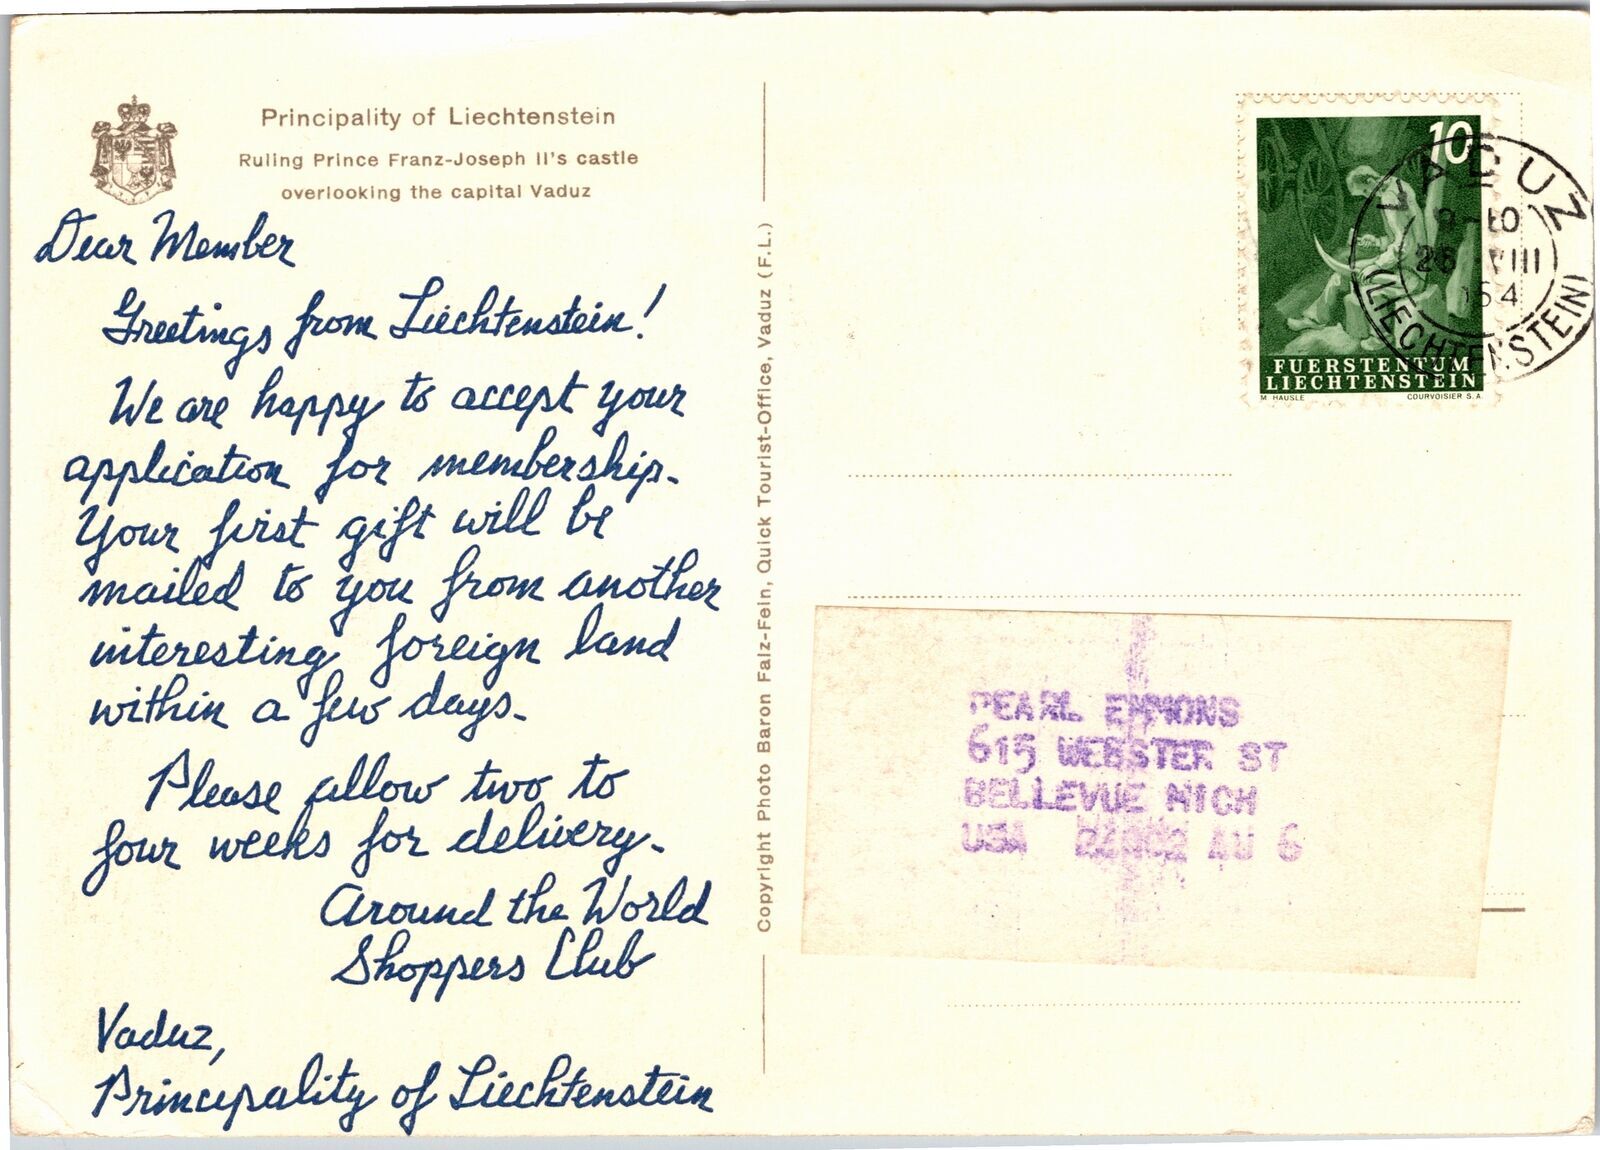 Principality of Liechtenstein
Ruling Prince Franz-Joseph II's castle
overlooking the capital Vaduz
Dear Member
Greetings from Liechtenstein!
We are happy to accept your
application for membership.
Your first gift will be
mailed to you from another
interesting foreign land
within a few days.
Please allow two to
four weeks for delivery.
Around the World
Shoppers Club
Vaduz,
Principality of Liechtenstein
Copyright Photo Baron Falz-Fein, Quick Tourist-Office, Vaduz (F.L.)
10
FUERSTENTUM
LIECHTENSTEIN
M HAUSLE COURVOISIER S.A.
VADUZ
VIII
54
(LIECHTENSTEIN)
PEARL EMMONS
615 WEBSTER ST
BELLEVUE MICH
USA AU 6